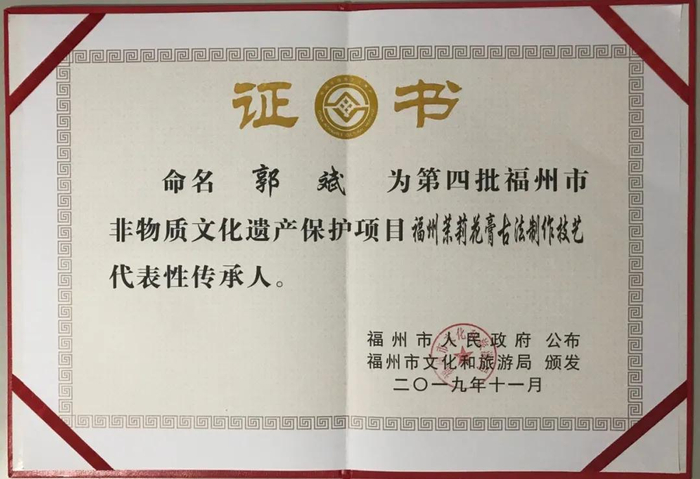 证书
命名 郭斌 为第四批福州市
非物质文化遗产保护项目福州茉莉花膏古法制作技艺
代表性传承人。
福州市人民政府 公布
福州市文化和旅游局 颁发
二〇一九年十一月